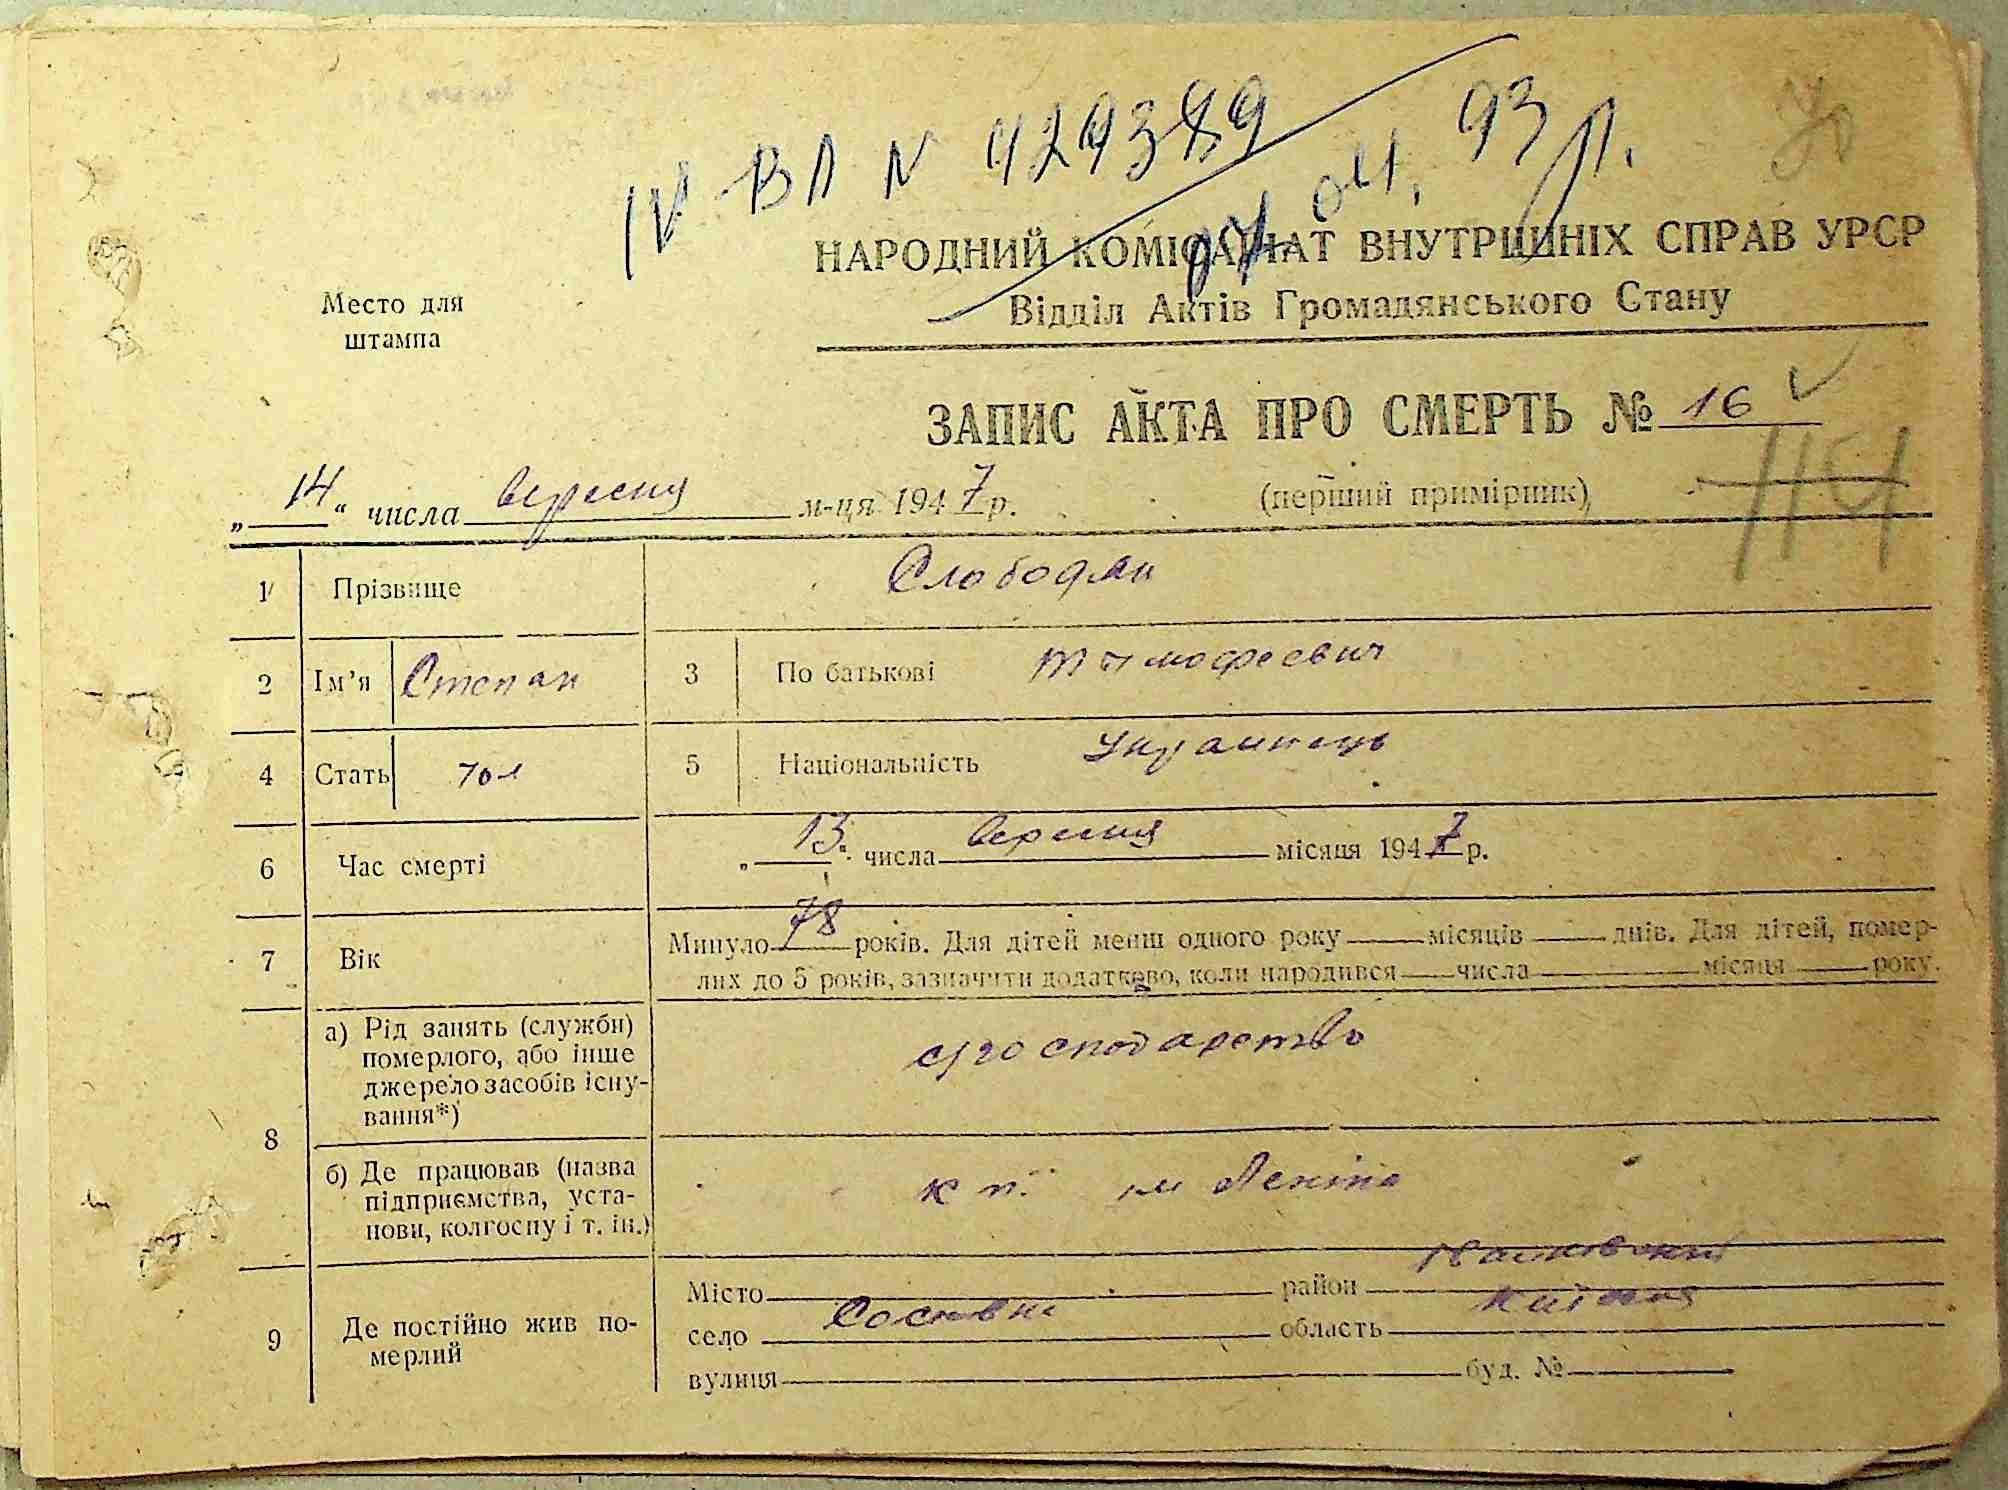 IV ВЛ N 429389
07.04.93 р.
Место для
штампа
НАРОДНИЙ КОМІСАРІАТ ВНУТРІШНІХ СПРАВ УРСР
Відділ Актів Громадянського Стану
ЗАПИС АКТА ПРО СМЕРТЬ № 16
„14“ числа вересня м-ця 1947 р. (перший примірник)
114
1 Прізвище Слободян
2 Ім’я Степан 3 По батькові Тимофеевич
4 Стать чол 5 Національність Украинець
6 Час смерті „13“ числа вересня місяця 1947 р.
7 Вік Минуло 78 років. Для дітей менш одного року місяців днів. Для дітей, помер-
лих до 5 років, зазначити додатково, коли народився числа місяця року.
8 а) Рід занять (служби)
померлого, або інше
джерело засобів існу-
вання*)
с/господарство
б) Де працював (назва
підприємства, уста-
нови, колгоспу і т. ін.)
к п. им Леніна
9 Де постійно жив по-
мерлий
Місто район
село Соснівка область Київська
вулиця буд. №